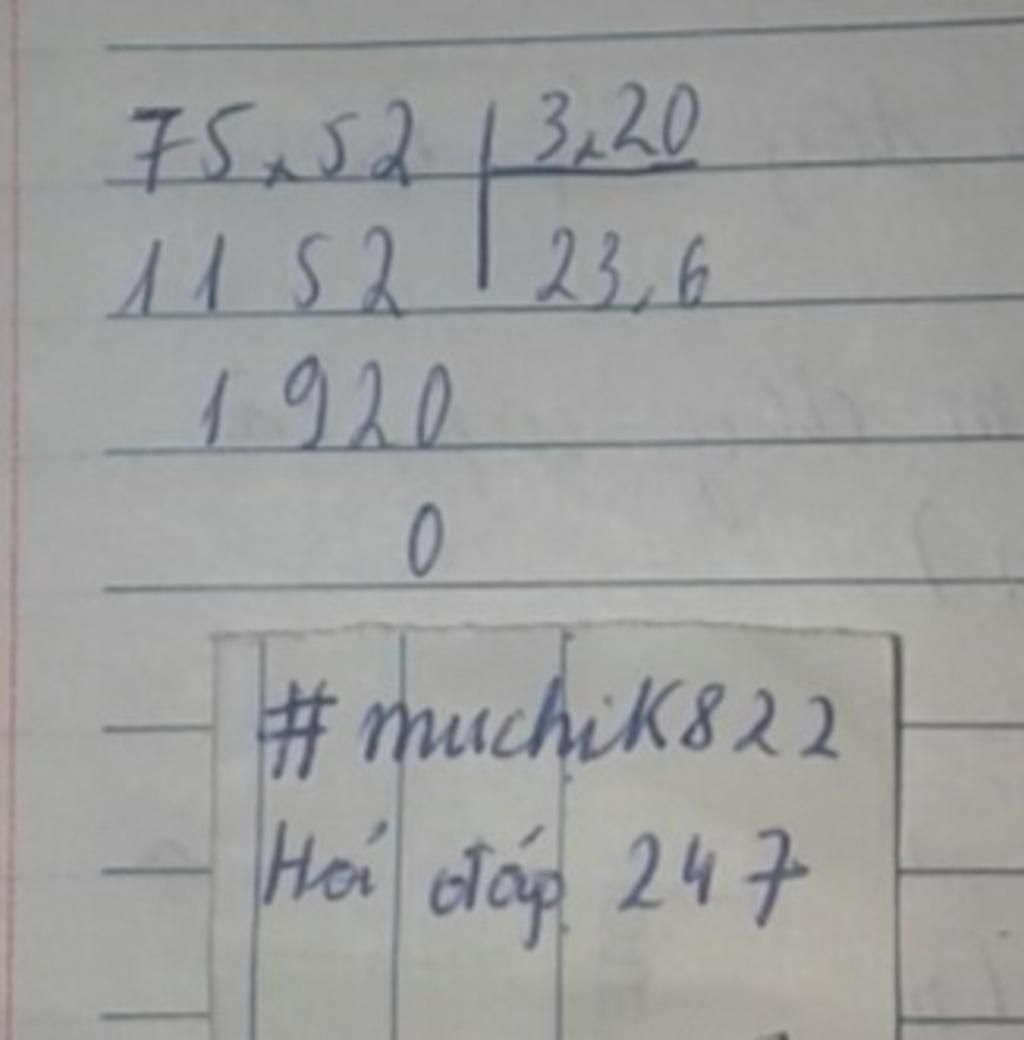 75,52 3,20
1152 23,6
1920
0
#muchiK822
Hoi đáp 247